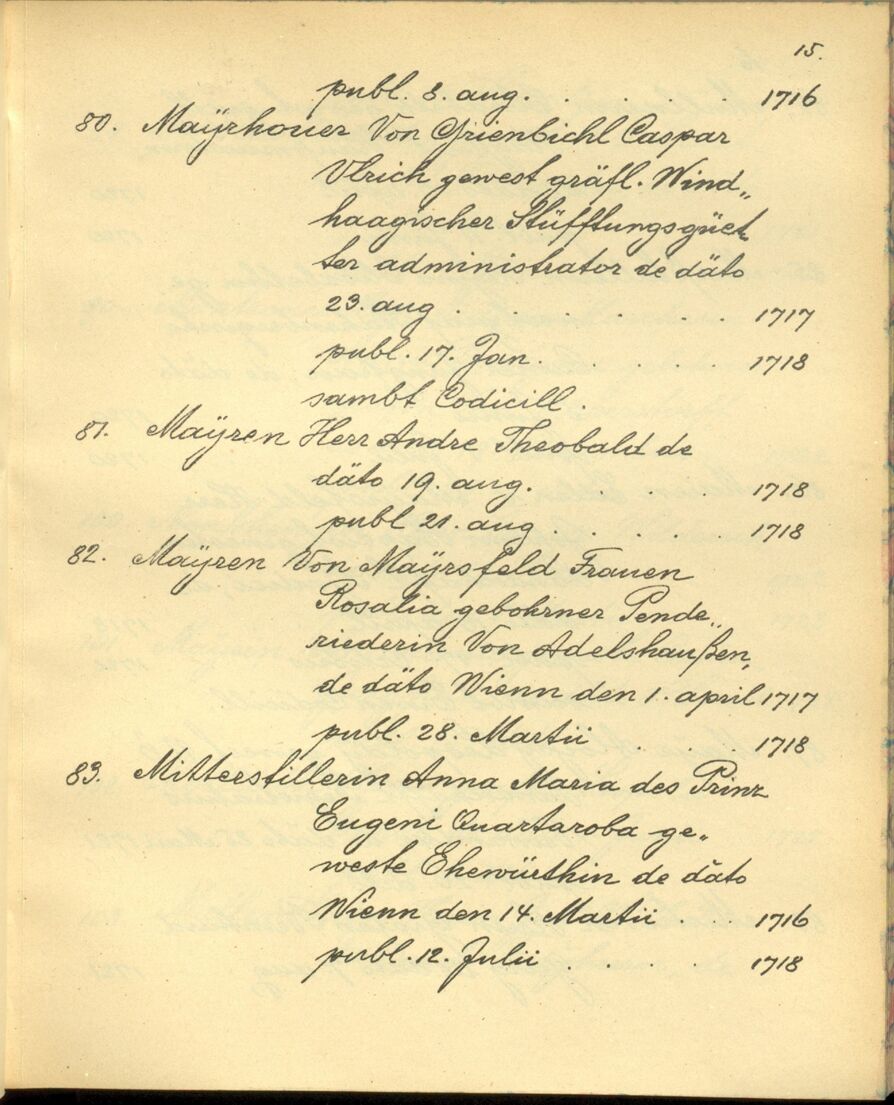 15.
publ. 8. aug. . . . . 1716
80. Maÿrhouer Von Grienbichl Caspar
Vlrich gewest gräfl. Wind„
haagischer Stüfftungsgüet
ter administrator de däto
23. aug . . . . . 1717
publ. 17. Jan. . . . 1718
sambt Codicill.
81. Maÿren Herr Andre Theobald de
däto 19. aug. . . . 1718
publ 21. aug . . . . 1718
82. Maÿren Von Maÿrsfeld Frauen
Rosalia gebohrner Pende„
riederin Von Adelshaußen,
de däto Wienn den 1. april 1717
publ. 28. Martii . . . 1718
83. Mitterstillerin Anna Maria des Prinz
Eugeni Quartaroba ge„
weste Ehewürthin de däto
Wienn den 14. Martii . . 1716
publ. 12. Julii . . . . 1718